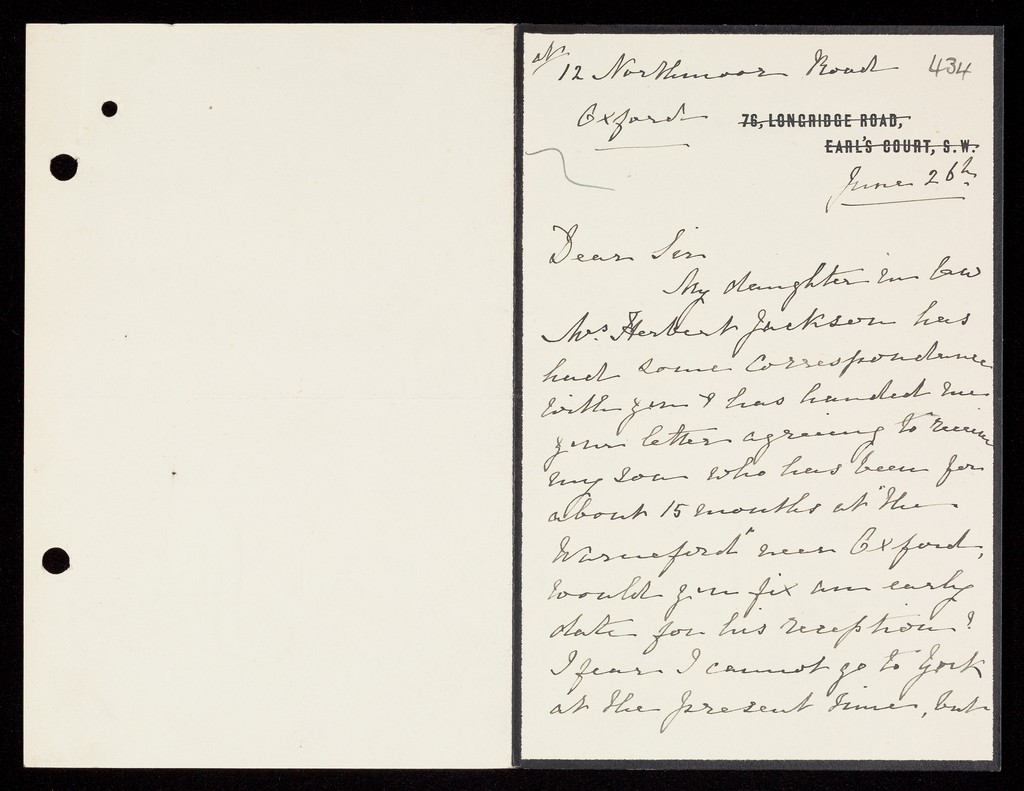 At 12 Northmoor Road 434
Oxford
76, LONGRIDGE ROAD,
EARL'S COURT, S.W.
June 26th
Dear Sir
My daughter in law
Mrs. Herbert Jackson has
had some correspondence
with you & has handed me
your letter agreeing to receive
my son who has been for
about 15 months at "the
Warneford" near Oxford,
would you fix an early
date for his reception?
I fear I cannot go to York
at the present time, but